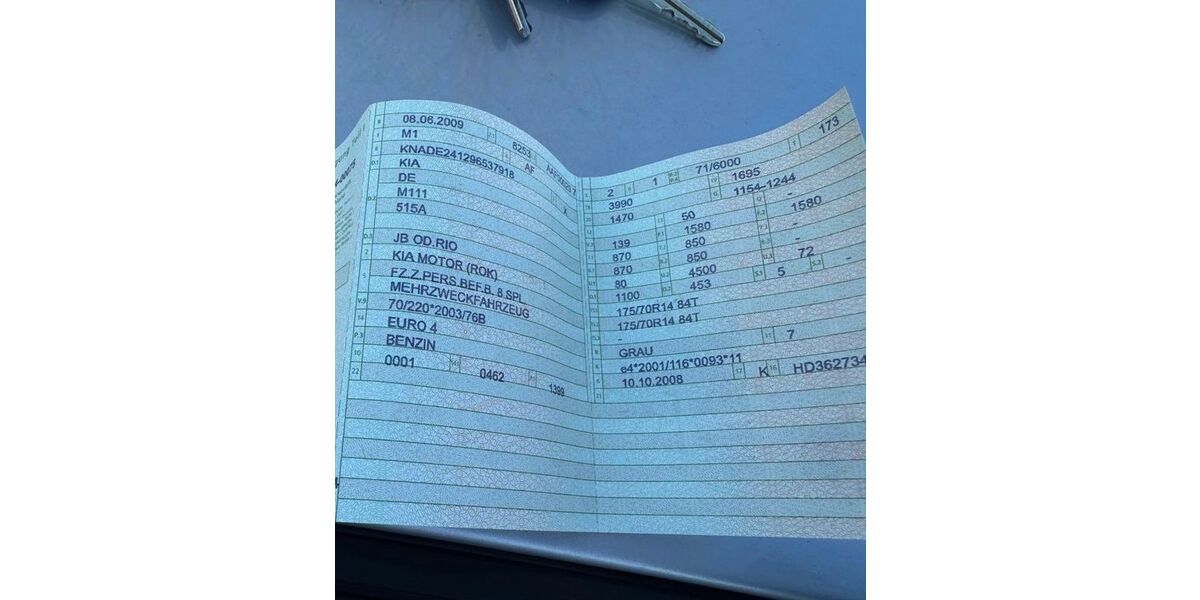 08.06.2009 8253
M1 AF
KNADE241296537918
KIA K
DE
M111
515A
JB OD.RIO
KIA MOTOR (ROK)
FZ.Z.PERS.BEF.B. 8 SPL
MEHRZWECKFAHRZEUG
70/220*2003/76B
EURO 4
BENZIN
0001 0462 1399
2 1 71/6000 173
3990 1695
1470 50 1154-1244 -
139 1580 1580
870 850 -
870 850 -
80 4500 72
1100 453 5 -
175/70R14 84T
175/70R14 84T
-
GRAU 7
e4*2001/116*0093*11
10.10.2008 K HD362734